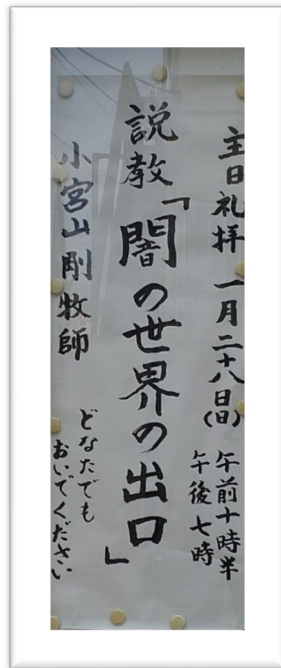 主日礼拝 一月二十八日(日) 午前十時半
午後七時
説教「闇の世界の出口」
小宮山剛牧師
どなたでも
おいでください